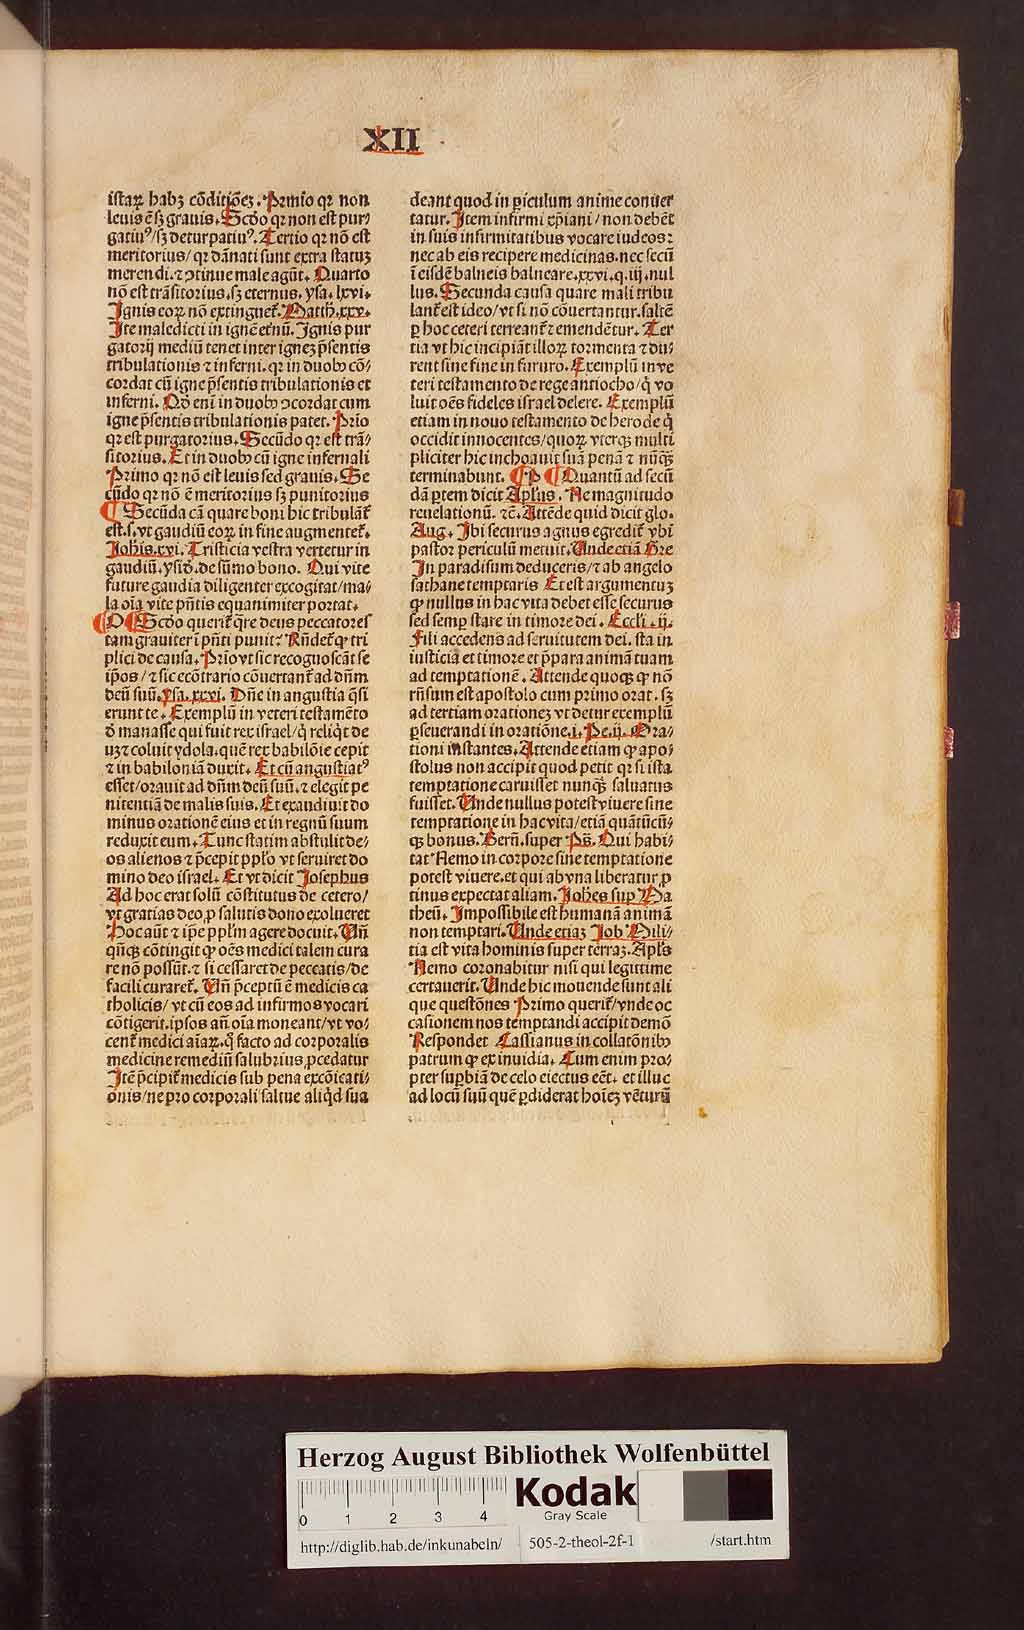 XII
istaꝝ habꝫ cōditiōeꝫ. Prīmo qꝛ non
leuis ē sꝫ grauis. Scḋo qꝛ non est pur⸗
gatiuꝰ/ sꝫ deturpatiuꝰ. Tertio qꝛ nō est
meritorius/ qꝛ dānati sunt extra statuꝫ
merendi. ⁊ ꝯtinue male agūt. Quarto
nō est trāsitorius. sꝫ eternus. ysa. lxvi.
Ignis eoꝝ nō extinguet᷑. Matth̄. xxv.
Ite maledicti in ignē et̄nū. Ignis pur
gatorij mediū tenet inter igneꝫ p̄sentis
tribulationis ⁊ inferni. qꝛ in duobꝰ cō⸗
cordat cū igne p̄sentis tribulationis et
inferni. Qḋ enī in duobꝰ ꝯcordat cum
igne p̄sentis tribulationis patet. Prīo
qꝛ est purgatorius. Secūdo qꝛ est trā⸗
sitorius. Et in duobꝰ cū igne infernali
Primo qꝛ nō est leuis sed grauis. Se
cūdo qꝛ nō ē meritorius sꝫ punitorius
¶ Secūda cā quare boni hic tribulāt᷑
est. s. vt gaudiū eoꝝ in fine augmentet᷑.
Joh̄is. xvi. Tristicia vestra vertetur in
gaudiū. ysiḋ. de sūmo bono. Qui vite
future gaudia diligenter excogitat/ ma⸗
la oīa vite pn̄tis equanimiter portat.
¶ O ¶ Scḋo querit᷑ q̄re deus peccatores
tam grauiter ī pn̄ti punit? Rn̄det᷑ ꝙ tri
plici de causa. Prīo vt sic recognoscāt se
ip̄os/ ⁊ sic ecōtrario cōuertant᷑ ad dn̄m
deū suū. ysa. xxvi. Dn̄e in angustia q̄si
erunt te. Exemplū in veteri testamēto
ḋ manasse qui fuit rex israel/ q̇ reliq̇t de
uꝫ ⁊ coluit ydola. quē rex babilōie cepit
⁊ in babiloniā duxit. Et cū angustiatꝰ
esset/ orauit ad dn̄m deū suū. ⁊ elegit pe
nitentiā de malis suis. Et exaudiuit do
minus orationē eius et in regnū suum
reduxit eum. Tunc statim abstulit de⸗
os alienos ⁊ p̄cepit pplo̅ vt seruiret do
mino deo israel. Et vt dicit Josephus
Ad hoc erat solū cōstitutus de cetero/
vt gratias deo ꝓ salutis dono exolueret
Hoc aūt ⁊ ip̄e ppl̄m agere docuit. Vn̄
qn̄qꝫ cōtingit ꝙ oēs medici talem cura
re nō possūt. ⁊ si cessaret de peccatis/ de
facili curaret᷑. Vn̄ p̄ceptū ē medicis ca
tholicis/ vt cū eos ad infirmos vocari
cōtigerit. ipsos an̄ oīa moneant/ vt vo⸗
cent᷑ medici aīaꝝ. q̇ facto ad corporalis
medicine remediū salubrius ꝓcedatur
Itē p̄cipit᷑ medicis sub pena excōicati⸗
onis/ ne pro corporali saltue aliq̇d sua
deant quod in ꝑiculum anime conuer
tatur. Item infirmi xp̄iani/ non debēt
in suis infirmitatibus vocare iudeos:
nec ab eis recipere medicinas. nec secū
ī eisdē balneis balneare. xxvi. q. iij. nul
lus. Secunda causa quare mali tribu
lant᷑ est ideo/ vt si nō cōuertantur. saltē
ꝑ hoc ceteri terreant᷑ ⁊ emendētur. Ter
tia vt hic incipiāt illoꝝ tormenta ⁊ du⸗
rent sine fine in futuro. Exemplū in ve
teri testamento de rege antiocho/ q̇ vo
luit oēs fideles israel delere. Exemplū
etiam in nouo testamento de herode q̇
occidit innocentes/ quoꝝ vterqꝫ multi
pliciter hic inchoauit suā penā ⁊ nūqꝫ
terminabunt. ¶ P ¶ Quantū ad secū
dā ꝑtem dicit Apl̄us. Ne magnitudo
reuelationū. ⁊c̄. Attēde quid dicit glo.
Aug. Ibi securus agnus egredit᷑ vbi
pastor periculū metuit. Unde etiā Gre
In paradisum deduceris/ ⁊ ab angelo
sathane temptaris Et est argumentuꝫ
ꝙ nullus in hac vita debet esse securus
sed semꝑ stare in timore dei. Eccli. ij.
Fili accedens ad seruitutem dei. sta in
iusticia et timore et p̄para animā tuam
ad temptationē. Attende quoqꝫ ꝙ nō
rn̄sum est apostolo cum primo orat. sꝫ
ad tertiam orationeꝫ vt detur exemplū
ꝑseuerandi in oratiōne. i. Pe. ij. Ora⸗
tioni instantes. Attende etiam ꝙ apo⸗
stolus non accipit quod petit qꝛ si ista
temptatione caruisset nunqꝫ̄ saluatus
fuisset. Unde nullus potest viuere sine
temptatione in hac vita/ etiā quātūcū⸗
qꝫ bonus. Bern̄. super Ps̄. Qui habi⸗
tat Nemo in corpore sine temptatione
potest viuere. et qui ab vna liberatur ꝓ
tinus expectat aliam. Joh̄es sup̄ Ma
theū. Impossibile est humanā animā
non temptari. Unde etiaꝫ Job Mili⸗
tia est vita hominis super terraꝫ. Apl̄s
Nemo coronabitur nisi qui legittime
certauerit. Unde hic mouende sunt ali
que questōnes Primo querit᷑/ vnde oc
casionem nos temptandi accipit demō
Respondet Cassianus in collatōnibꝰ
patrum ꝙ ex inuidia. Cum enim pro⸗
pter suꝑbiā de celo eiectus eēt. et illuc
ad locū suū quē ꝑdiderat hoīeꝫ vēturū
Herzog August Bibliothek Wolfenbüttel
0 1 2 3 4
Kodak
Gray Scale
http://diglib.hab.de/inkunabeln/ 505-2-theol-2f-1 /start.htm